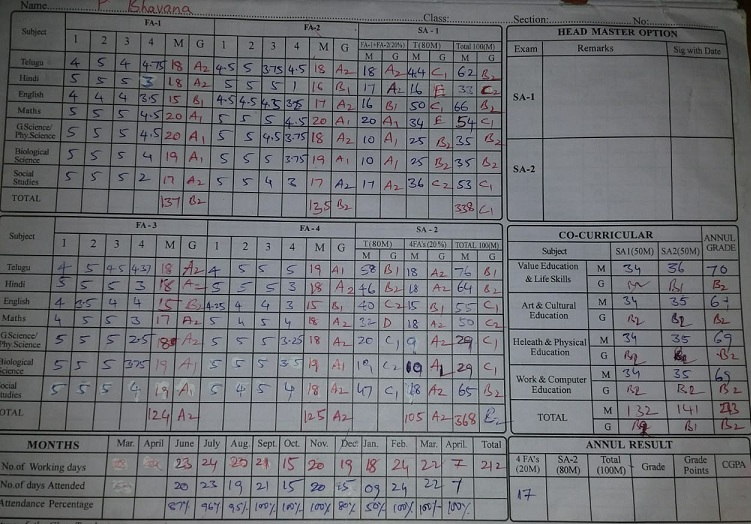 Name P. Bhavana Class: Section: No:
Subject FA-1 FA-2 SA - 1
1 2 3 4 M G 1 2 3 4 M G FA-1+FA-2(20%) T(80M) Total 100(M)
M G M G M G
Telugu 4 5 4 4.75 18 A2 4.5 5 3.75 4.5 18 A2 18 A2 44 C1 62 B2
Hindi 5 5 5 3 18 A2 5 5 5 1 16 B1 17 A2 16 E 33 C2
English 4 4 4 3.5 15 B1 4.5 4.5 4.5 3.75 17 A2 16 B1 50 C1 66 B2
Maths 5 5 5 4.5 20 A1 5 5 5 4.5 20 A1 20 A1 34 E 54 C1
G.Science/ Phy.Science 5 5 5 4.5 20 A1 5 5 4.5 3.75 18 A2 10 A1 25 B2 35 B2
Biological Science 5 5 5 4 19 A1 5 5 5 3.75 19 A1 10 A1 25 B2 35 B2
Social Studies 5 5 5 2 17 A2 5 5 4 3 17 A2 17 A2 36 C2 53 C1
TOTAL 137 B2 135 B2 338 C1
HEAD MASTER OPTION
Exam Remarks Sig with Date
SA-1
SA-2
Subject FA - 3 FA - 4 SA - 2
1 2 3 4 M G 1 2 3 4 M G T(80M) 4FA's(20%) TOTAL 100(M)
M G M G M G
Telugu 4 5 4.5 4.37 18 A2 4 5 5 5 19 A1 58 B1 18 A2 76 B1
Hindi 5 5 5 3 18 A2 5 5 5 3 18 A2 46 B2 18 A2 64 B2
English 4 3.5 4 4 15 B2 4.25 4 4 3 15 B1 40 C2 15 B1 55 C1
Maths 4 5 5 3 17 A2 5 4 5 4 18 A2 32 D 18 A2 50 C2
G.Science/ Phy Science 5 5 5 2.5 18 A2 5 5 5 3.25 18 A2 20 C1 9 A2 29 C1
Biological Science 5 5 5 3.75 19 A1 5 5 5 3.5 19 A1 19 C2 10 A1 29 C1
Social Studies 5 5 5 4 19 A1 5 4 5 4 18 A2 47 C1 18 A2 65 B2
TOTAL 124 A2 125 A2 105 A2 368 B2
CO-CURRICULAR
Subject SA1(50M) SA2(50M) ANNUL GRADE
Value Education & Life Skills M 34 36 70
G B2 B1 B2
Art & Cultural Education M 34 35
G B2 B2 B2
Heleath & Physical Education M 34 35 69
G B2 B2 B2
Work & Computer Education M 34 35 69
G B2 B2 B2
TOTAL M 132 141
G B2 B1 B2
MONTHS Mar. April June July Aug. Sept. Oct. Nov. Dec Jan. Feb. Mar. April. Total
No.of Working days 23 24 20 21 15 20 19 18 24 22 7 212
No.of days Attended 20 23 19 21 15 20 15 09 24 22 7
Attendance Percentage 87% 96% 95% 100% 100% 100% 80% 50% 100% 100% 100%
ANNUL RESULT
4 FA's (20M) SA-2 (80M) Total (100M) Grade Grade Points CGPA
17